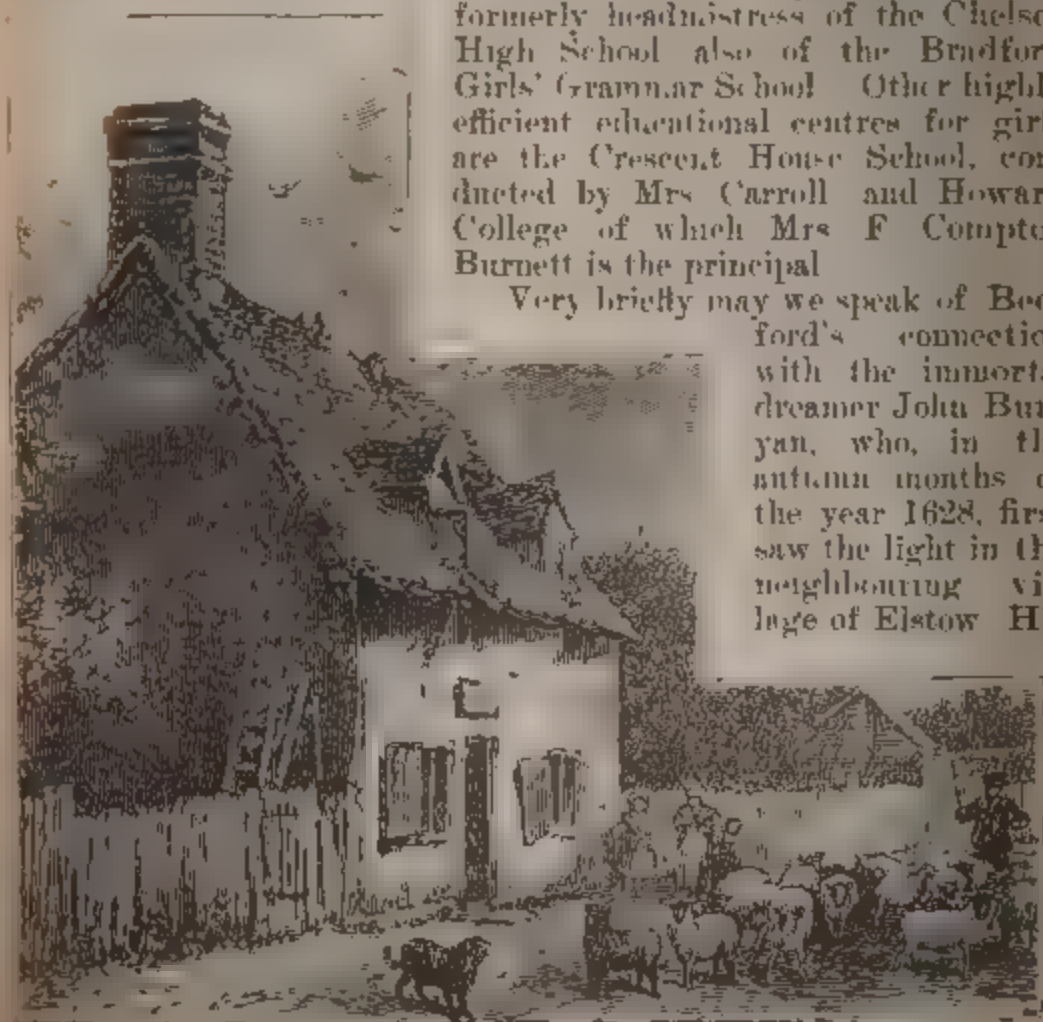 formerly headmistress of the Chelse
High School also of the Bradfor
Girls' Grammar School Other highl
efficient educational centres for girl
are the Crescent House School, con
ducted by Mrs Carroll and Howar
College of which Mrs F Compto
Burnett is the principal
Very briefly may we speak of Bed
ford's connectio
with the immorta
dreamer John Bun
yan, who, in th
autumn months o
the year 1628, firs
saw the light in th
neighbouring vi
lage of Elstow H